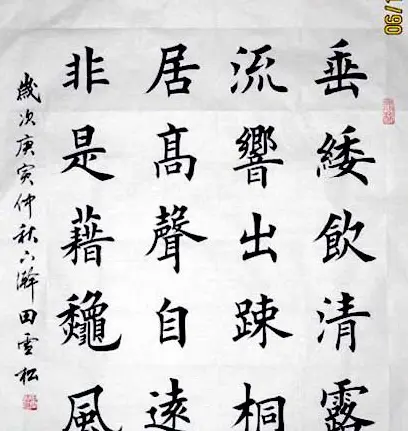 垂緌飲清露
流響出疎桐
居髙聲自遠
非是藉龝風
歲次庚寅仲秋下澣田雪松